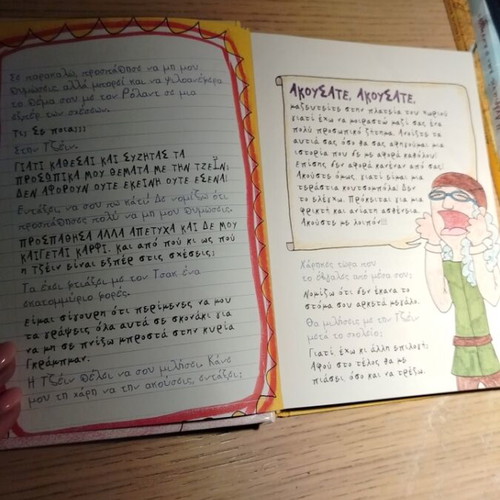 Σε παρακαλώ, προσπάθησε να μη μου
θυμώσεις, αλλά μπορεί και να ψιλοανέφερα
το θέμα σου με τον Ρόλαντ σε μια
εξπέρ των σχέσεων.
Τι; Σε ποια;;;
Στην Τζέιν.
ΓΙΑΤΙ ΚΑΘΕΣΑΙ ΚΑΙ ΣΥΖΗΤΑΣ ΤΑ
ΠΡΟΣΩΠΙΚΑ ΜΟΥ ΘΕΜΑΤΑ ΜΕ ΤΗΝ ΤΖΕΪΝ;
ΔΕΝ ΑΦΟΡΟΥΝ ΟΥΤΕ ΕΚΕΙΝΗ ΟΥΤΕ ΕΣΕΝΑ!
Εντάξει, να σου πω κάτι; Δε νομίζω ότι
προσπάθησες πολύ να μη μου θυμώσεις.
ΠΡΟΣΠΑΘΗΣΑ ΑΛΛΑ ΑΠΕΤΥΧΑ ΚΑΙ ΔΕ ΜΟΥ
ΚΑΙΓΕΤΑΙ ΚΑΡΦΙ. Και από πού κι ως πού
η Τζέιν είναι εξπέρ στις σχέσεις;
Τα έχει φτιάξει με τον Τσακ ένα
εκατομμύριο φορές.
Είμαι σίγουρη ότι περίμενες να μου
τα γράψεις όλα αυτά σε σκονάκι για
να μη σε πνίξω μπροστά στην κυρία
Γκράμπμαν.
Η Τζέιν θέλει να σου μιλήσει. Κάνε
μου τη χάρη να την ακούσεις, εντάξει;
ΑΚΟΥΣΑΤΕ, ΑΚΟΥΣΑΤΕ,
μαζευτείτε στην πλατεία του χωριού
γιατί έχω να μοιραστώ μαζί σας ένα
πολύ προσωπικό ζήτημα. Ανοίξτε τα
αυτιά σας όσο θα σας αφηγούμαι μια
ιστορία που δε με αφορά καθόλου!
Επίσης δεν αφορά κανέναν από σας!
Ακούστε όμως, γιατί είμαι μια
τεράστια κουτσομπόλα! Δεν
το ελέγχω. Πρόκειται για μια
φρικτή και ανίατη ασθένεια.
Ακούστε με λοιπόν!!!
Χάρηκες τώρα που
το έβγαλες από μέσα σου;
Νομίζω ότι δεν έκανα το
στόμα σου αρκετά μεγάλο.
Θα μιλήσεις με την Τζέιν
μετά το σχολείο;
Γιατί, έχω κι άλλη επιλογή;
Αφού στο τέλος θα με
πιάσει όσο και να τρέξω.